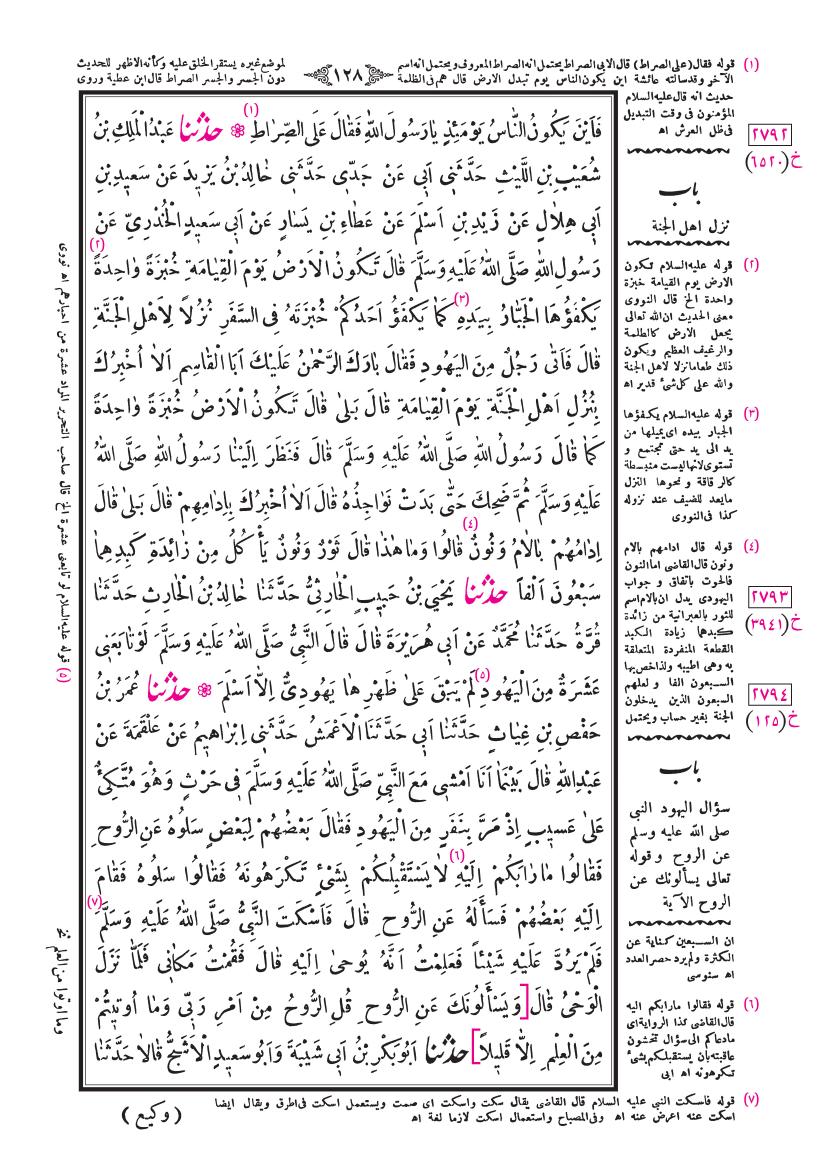 (١) قوله فقال (على الصراط) قال الابى الصراط يحتمل انه الصراط المعروف ويحتمل انه اسم
الآخر وقد سألته عائشة اين يكون الناس يوم تبدل الارض قال هم فى الظلمة
حديث انه قال عليه السلام
المؤمنون فى وقت التبديل
فى ظل العرش اه
١٢٨
لموضع غيره يستقر الخلق عليه وكأنه الاظهر للحديث
دون الجسر والجسر الصراط قال ابن عطية وروى
٢٧٩٢
خ (٦٥٢٠)
باب
نزل اهل الجنة
(٢) قوله عليه السلام تكون
الارض يوم القيامة خبزة
واحدة الخ قال النووى
معنى الحديث ان الله تعالى
يجعل الارض كالطلمة
والرغيف العظيم ويكون
ذلك طعاما نزلا لاهل الجنة
والله على كل شئ قدير اه
(٣) قوله عليه السلام يكفؤها
الجبار بيده اى يميلها من
يد الى يد حتى تجتمع و
تستوى لانها ليست منبسطة
كالرقاقة و نحوها النزل
ما يعد للضيف عند نزوله
كذا فى النووى
(٤) قوله قال ادامهم بالام
ونون قال القاضى اما النون
فالحوت باتفاق و جواب
اليهودى يدل ان بالام اسم
للثور بالعبرانية من زائدة
كبدهما زيادة الكبد
القطعة المنفردة المتعلقة
به وهى اطيبه ولذا خص بها
السبعون الفا و لعلهم
السبعون الذين يدخلون
الجنة بغير حساب ويحتمل
٢٧٩٣
خ (٣٩٤١)
٢٧٩٤
خ (١٢٥)
باب
سؤال اليهود النبى
صلى الله عليه وسلم
عن الروح وقوله
تعالى يسألونك عن
الروح الآية
ان السبعين كناية عن
الكثرة ولم يرد حصر العدد
اه سنوسى
(٦) قوله فقالوا ما رابكم اليه
قال القاضى كذا الرواية اى
ما دعاكم الى سؤال تخشون
عاقبته بأن يستقبلكم بشئ
تكرهونه اه ابى
فَاَيْنَ يَكُونُ النَّاسُ يَوْمَئِذٍ يَا رَسُولَ اللهِ فَقَالَ عَلَى الصِّرَاطِ (١) ❁ حَدَّثَنَا عَبْدُ الْمَلِكِ بْنُ
شُعَيْبِ بْنِ اللَّيْثِ حَدَّثَنِى اَبِى عَنْ جَدِّى حَدَّثَنِى خَالِدُ بْنُ يَزِيدَ عَنْ سَعِيدِ بْنِ
اَبِى هِلَالٍ عَنْ زَيْدِ بْنِ اَسْلَمَ عَنْ عَطَاءِ بْنِ يَسَارٍ عَنْ اَبِى سَعِيدٍ الْخُدْرِىِّ عَنْ
رَسُولِ اللهِ صَلَّى اللهُ عَلَيْهِ وَسَلَّمَ قَالَ تَكُونُ الْاَرْضُ يَوْمَ الْقِيَامَةِ خُبْزَةً وَاحِدَةً (٢)
يَكْفَؤُهَا الْجَبَّارُ بِيَدِهِ (٣) كَمَا يَكْفَؤُ اَحَدُكُمْ خُبْزَتَهُ فِى السَّفَرِ نُزُلًا لِاَهْلِ الْجَنَّةِ
قَالَ فَاَتٰى رَجُلٌ مِنَ الْيَهُودِ فَقَالَ بَارَكَ الرَّحْمٰنُ عَلَيْكَ اَبَا الْقَاسِمِ اَلَا اُخْبِرُكَ
بِنُزُلِ اَهْلِ الْجَنَّةِ يَوْمَ الْقِيَامَةِ قَالَ بَلٰى قَالَ تَكُونُ الْاَرْضُ خُبْزَةً وَاحِدَةً
كَمَا قَالَ رَسُولُ اللهِ صَلَّى اللهُ عَلَيْهِ وَسَلَّمَ قَالَ فَنَظَرَ اِلَيْنَا رَسُولُ اللهِ صَلَّى اللهُ
عَلَيْهِ وَسَلَّمَ ثُمَّ ضَحِكَ حَتّٰى بَدَتْ نَوَاجِذُهُ قَالَ اَلَا اُخْبِرُكَ بِاِدَامِهِمْ قَالَ بَلٰى قَالَ
اِدَامُهُمْ بَالَامُ وَنُونٌ (٤) قَالُوا وَمَا هٰذَا قَالَ ثَوْرٌ وَنُونٌ يَأْكُلُ مِنْ زَائِدَةِ كَبِدِهِمَا
سَبْعُونَ اَلْفًا حَدَّثَنَا يَحْيَى بْنُ حَبِيبٍ الْحَارِثِىُّ حَدَّثَنَا خَالِدُ بْنُ الْحَارِثِ حَدَّثَنَا
قُرَّةُ حَدَّثَنَا مُحَمَّدٌ عَنْ اَبِى هُرَيْرَةَ قَالَ قَالَ النَّبِىُّ صَلَّى اللهُ عَلَيْهِ وَسَلَّمَ لَوْ تَابَعَنِى
عَشَرَةٌ مِنَ الْيَهُودِ (٥) لَمْ يَبْقَ عَلٰى ظَهْرِهَا يَهُودِىٌّ اِلَّا اَسْلَمَ ❁ حَدَّثَنَا عُمَرُ بْنُ
حَفْصِ بْنِ غِيَاثٍ حَدَّثَنَا اَبِى حَدَّثَنَا الْاَعْمَشُ حَدَّثَنِى اِبْرَاهِيمُ عَنْ عَلْقَمَةَ عَنْ
عَبْدِ اللهِ قَالَ بَيْنَمَا اَنَا اَمْشِى مَعَ النَّبِىِّ صَلَّى اللهُ عَلَيْهِ وَسَلَّمَ فِى حَرْثٍ وَهُوَ مُتَّكِئٌ
عَلٰى عَسِيبٍ اِذْ مَرَّ بِنَفَرٍ مِنَ الْيَهُودِ فَقَالَ بَعْضُهُمْ لِبَعْضٍ سَلُوهُ عَنِ الرُّوحِ
فَقَالُوا مَا رَابَكُمْ اِلَيْهِ (٦) لَا يَسْتَقْبِلُكُمْ بِشَىْءٍ تَكْرَهُونَهُ فَقَالُوا سَلُوهُ فَقَامَ
اِلَيْهِ بَعْضُهُمْ فَسَأَلَهُ عَنِ الرُّوحِ قَالَ فَاَسْكَتَ النَّبِىُّ صَلَّى اللهُ عَلَيْهِ وَسَلَّمَ (٧)
فَلَمْ يَرُدَّ عَلَيْهِ شَيْئًا فَعَلِمْتُ اَنَّهُ يُوحٰى اِلَيْهِ قَالَ فَقُمْتُ مَكَانِى فَلَمَّا نَزَلَ
الْوَحْىُ قَالَ [وَيَسْأَلُونَكَ عَنِ الرُّوحِ قُلِ الرُّوحُ مِنْ اَمْرِ رَبِّى وَمَا اُوتِيتُمْ
مِنَ الْعِلْمِ اِلَّا قَلِيلًا] حَدَّثَنَا اَبُو بَكْرِ بْنُ اَبِى شَيْبَةَ وَاَبُو سَعِيدٍ الْاَشَجُّ قَالَا حَدَّثَنَا
(٥) قوله عليه السلام لو تابعنى عشرة الخ قال صاحب التحرير المراد عشرة من احبارهم اه نووى
وما اوتوا من العلم نخ
(٧) قوله فاسكت النبى عليه السلام قال القاضى يقال سكت واسكت اى صمت ويستعمل اسكت فى اطرق ويقال ايضا
اسكت عنه اعرض عنه اه وفى المصباح واستعمال اسكت لازما لغة اه
(وكيع)